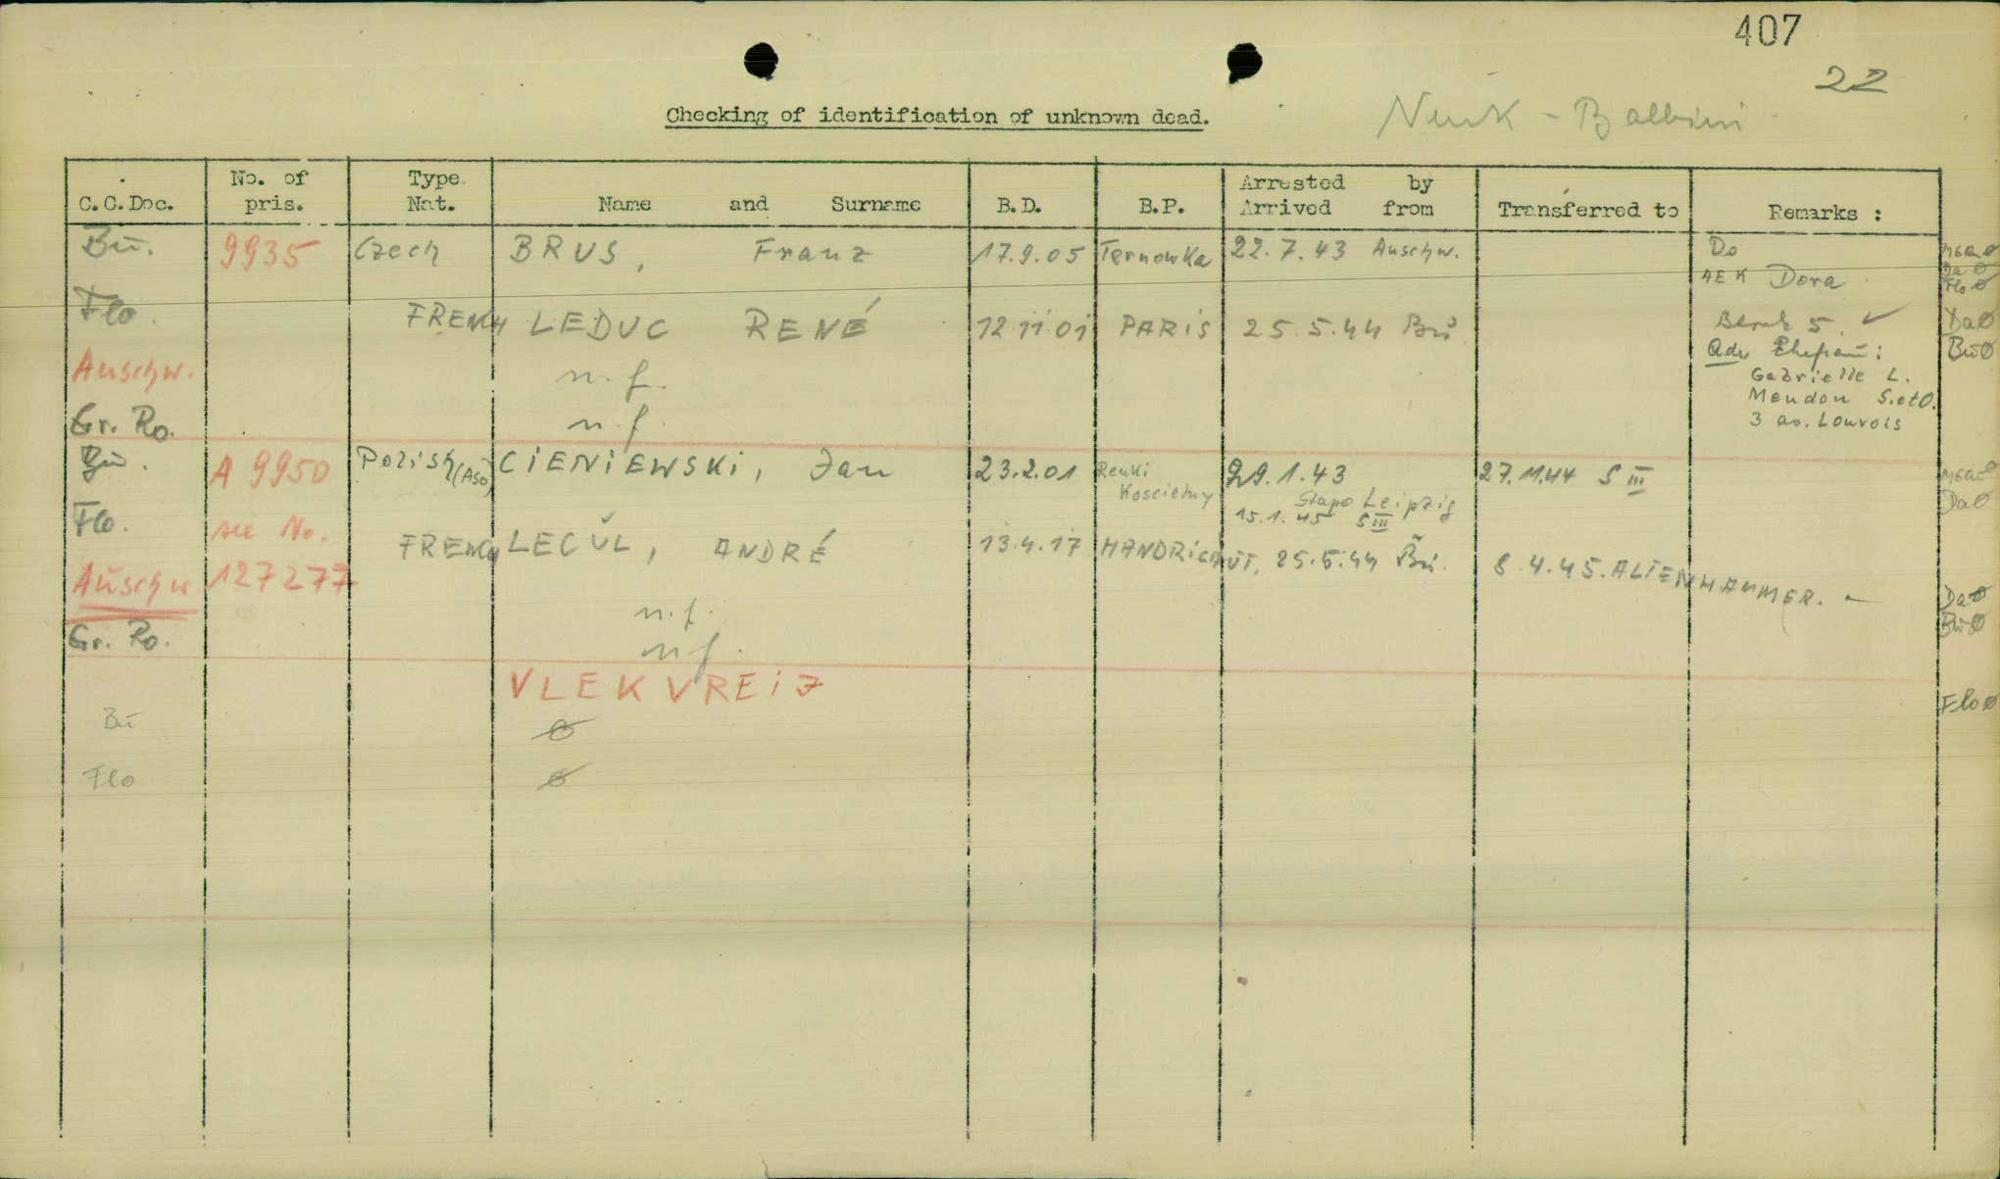 407
22
Checking of identification of unknown dead.
C.C.Doc. No. of pris. Type Nat. Name and Surname B.D. B.P. Arrested by Arrived from Transferred to Remarks :
Bū. 9935 Czech BRUS, Franz 17.9.05 Ternowka 22.7.43 Auschw. Do
AEK Dora
Flo. FRENCH LEDUC RENÉ 12.11.01 PARIS 25.5.44 Bū 5. ✓ Da Ø
Auschw. n.f. Adr Ehefrau: Bū Ø
Gabrielle L.
Meudon S.etO.
Gr. Ro. n.f. 3 av. Louvois
Bū. A 9950 Polish (Aso) CIENIEWSKI, Jan 23.2.01 29.1.43 27.11.44 S III
Koscielny Stapo Leipzig Da Ø
15.1.45 S III
Flo. see No. FRENCH LECŬL, ANDRÉ 13.4.17 25.5.44 Bū. 8.4.45. ALTENHAMMER. –
Auschw. 127277 n.f. Da Ø
Bū Ø
Gr. Ro. n.f.
VLEKVREIJ Flo Ø
Bū Ø
Flo Ø